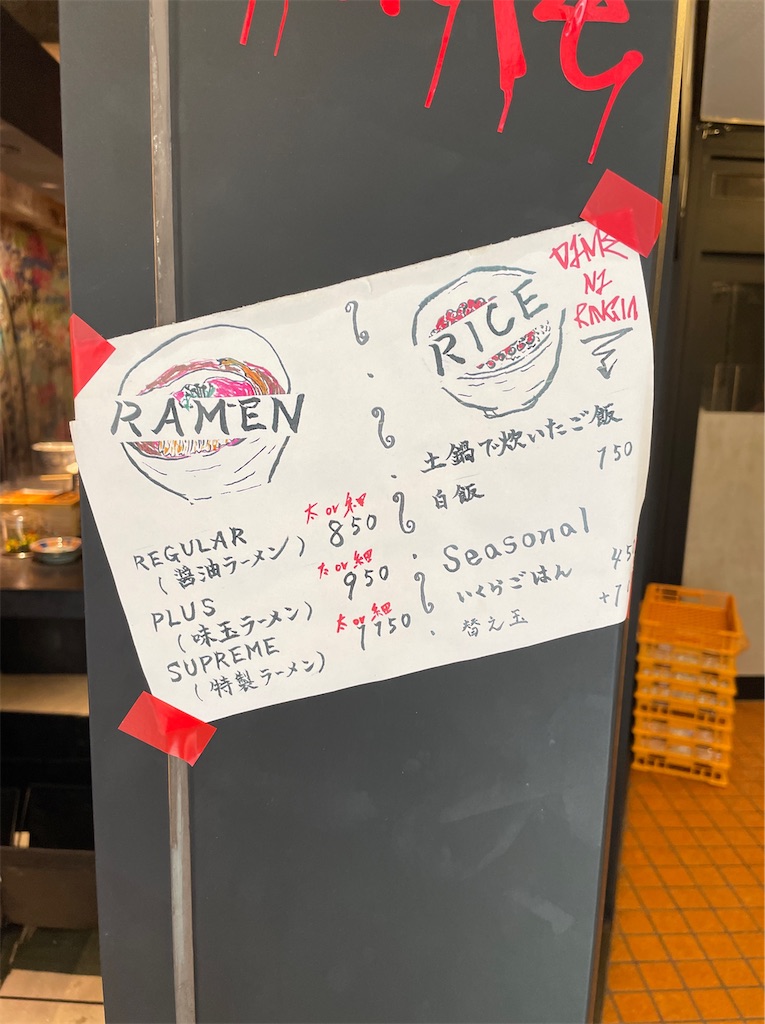 RAMEN
REGULAR
(醤油ラーメン)
太 or 細
850
PLUS
(味玉ラーメン)
太 or 細
950
SUPREME
(特製ラーメン)
太 or 細
1150
RICE
土鍋で炊いたご飯
白飯 150
Seasonal
いくらごはん 45
替え玉